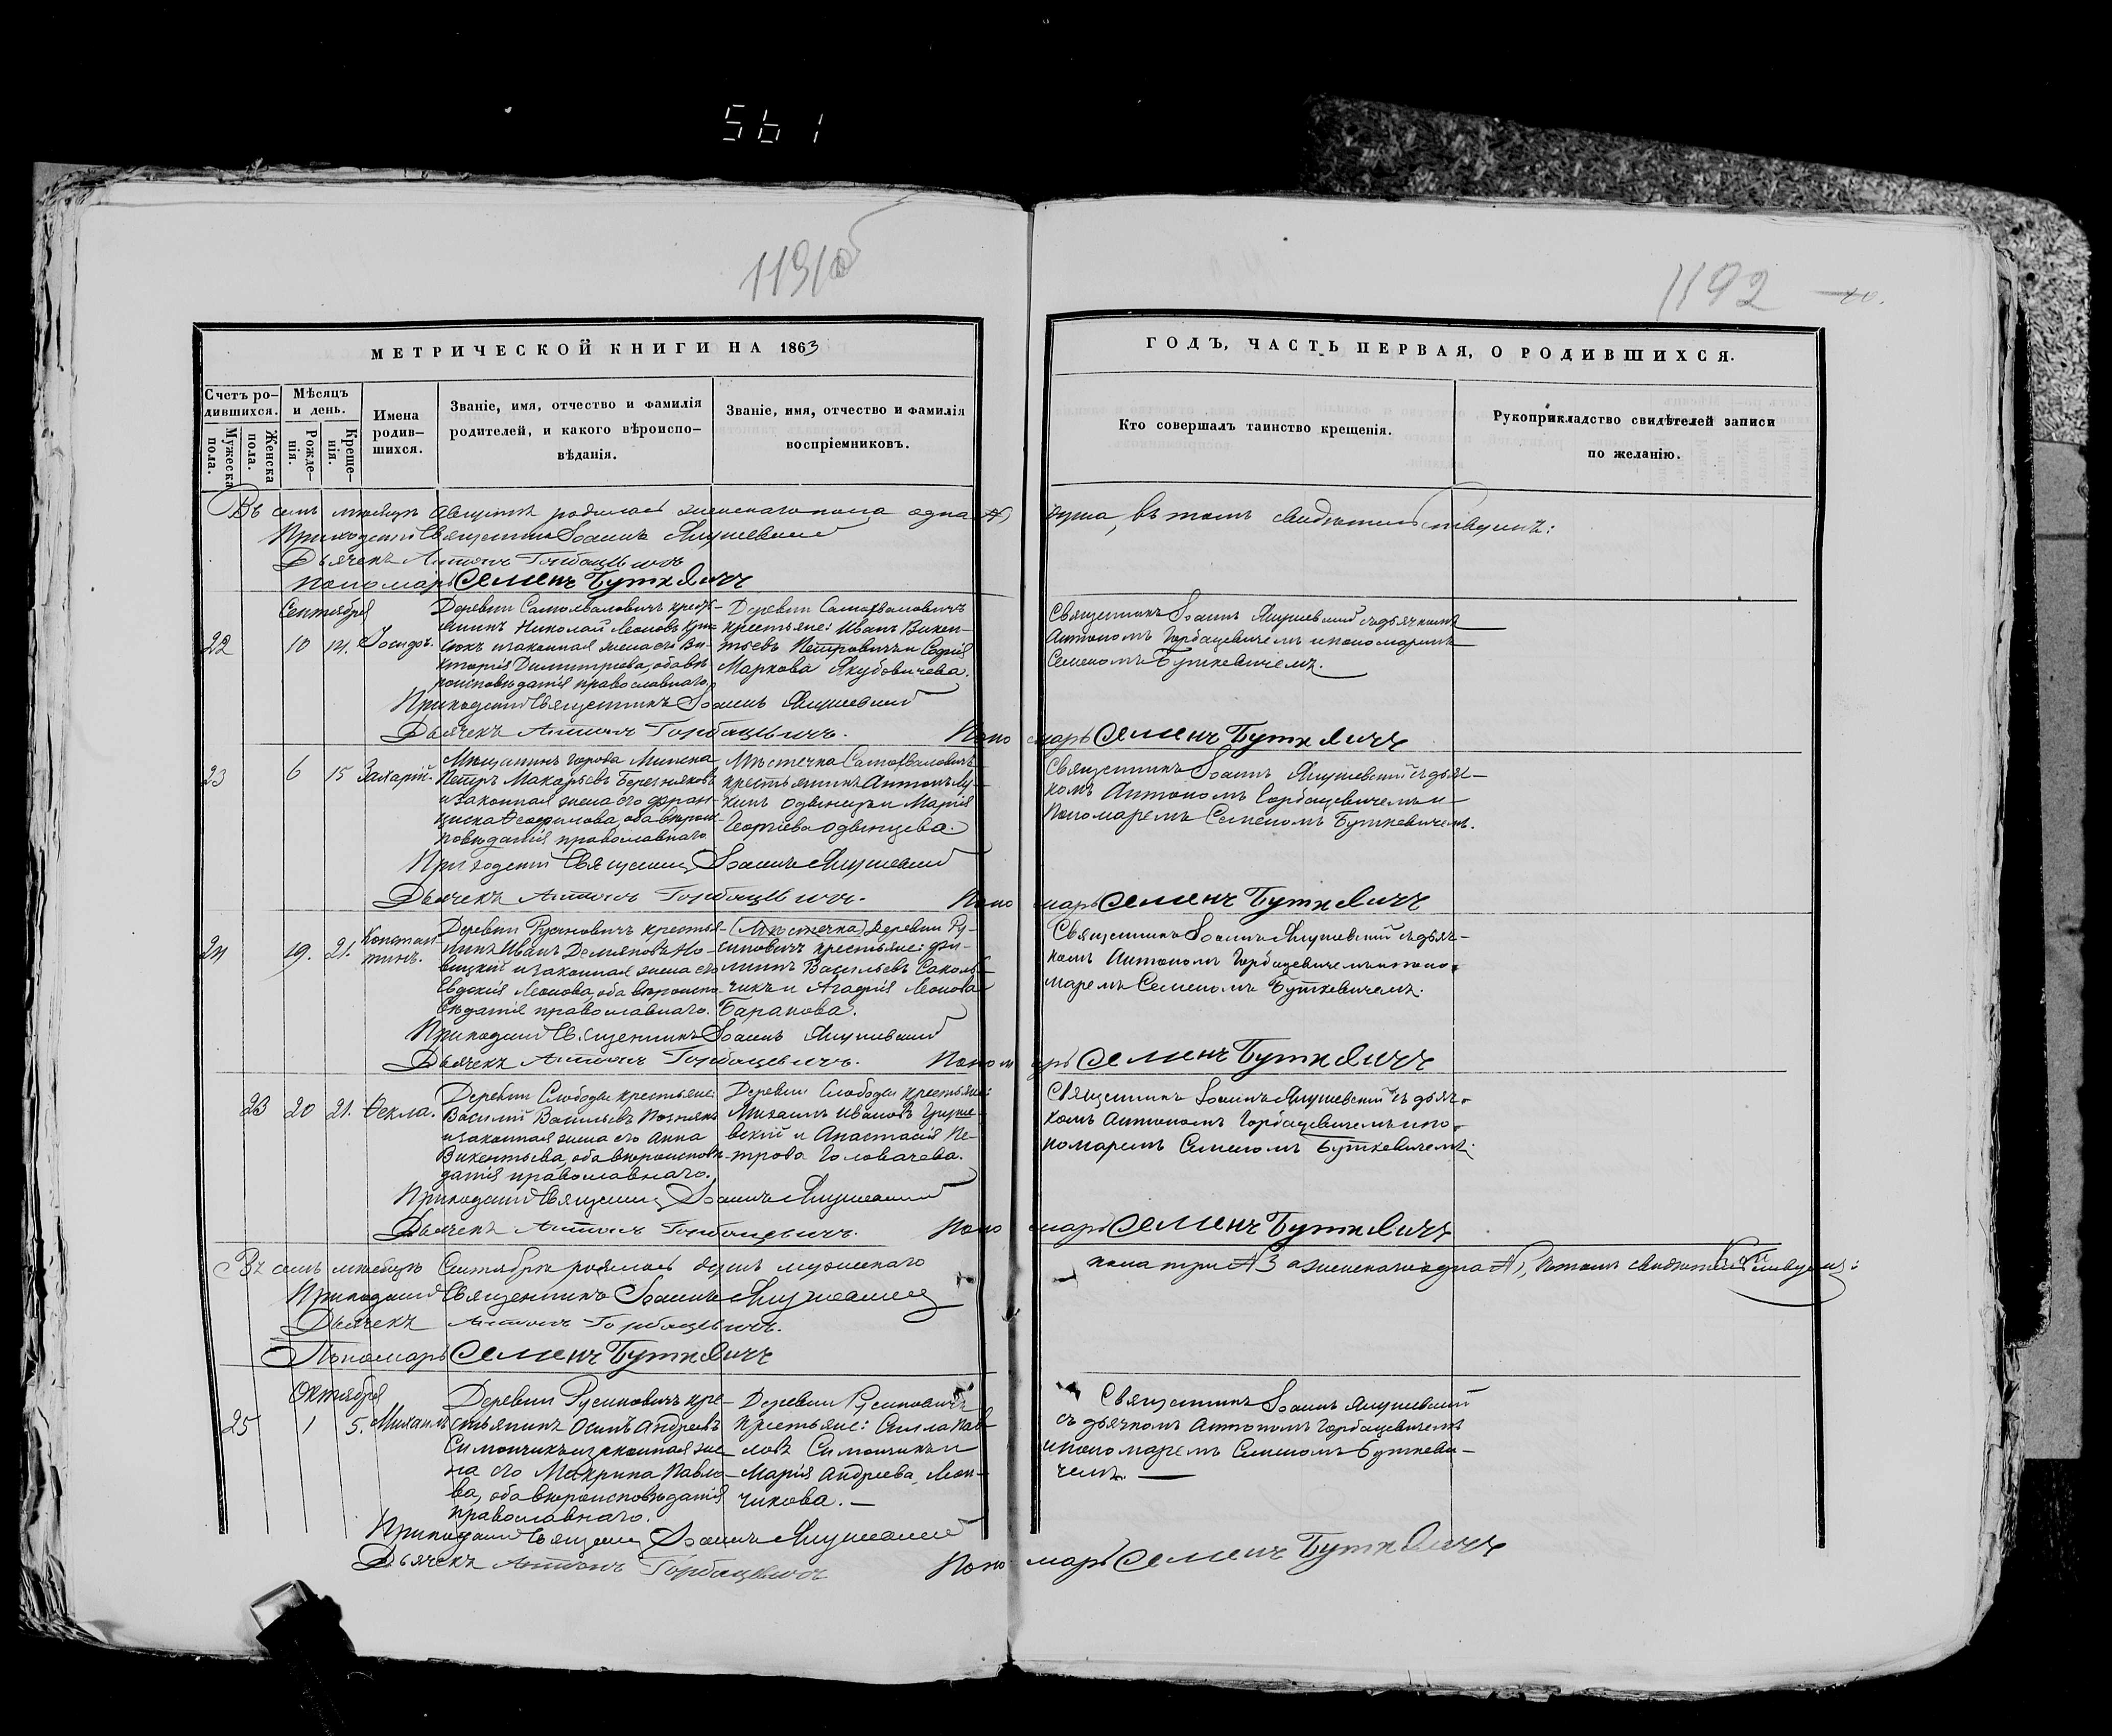 561
1191об
1192
МЕТРИЧЕСКОЙ КНИГИ НА 1863
Счетъ ро-
дившихся.
Мужеска
пола.
Женска
пола.
Мѣсяцъ
и день.
Рожде-
нія.
Креще-
нія.
Имена
родив-
шихся.
Званіе, имя, отчество и фамилія
родителей, и какого вѣроиспо-
вѣданія.
Званіе, имя, отчество и фамилія
воспріемниковъ.
ГОДЪ, ЧАСТЬ ПЕРВАЯ, О РОДИВШИХСЯ.
Кто совершалъ таинство крещенія.
Рукоприкладство свидѣтелей записи
по желанію.
Въ семъ мѣсяцѣ Августѣ родилась женскаго пола одна №1 душа, въ томъ свидѣтельствуемъ:
Приходскій Священникъ Іоаннъ
Дьячекъ Антонъ Горбацевичъ
Пономарь Семенъ Буткевичъ
Сентября
22
10
14.
Іосифъ.
Деревни Самохваловичъ кресть-
янинъ Николай Леоновъ
и законная жена его Ви-
кторія Димитріева, оба вѣ-
роисповѣданія православнаго.
Деревни Самохваловичъ
крестьяне: Иванъ Викен-
тьевъ Петровичъ и Софія
Маркова Якубовичева.
Священникъ Іоаннъ съ дьячкомъ
Антономъ Горбацевичемъ и пономаремъ
Семеномъ Буткевичемъ.
Приходскій Священникъ Іоаннъ
Дьячекъ Антонъ Горбацевичъ.
Пономарь Семенъ Буткевичъ
23
6
15
Захарій.
Мѣщанинъ города Минска
Петръ Макарьевъ Березняковъ
и законная жена его Фран-
циска Ѳеофилова, оба вѣроис-
повѣданія православнаго.
Мѣстечка Самохваловичъ
крестьянинъ Антонъ
Одвинецъ и Марія
Георгіева Одвинцева.
Священникъ Іоаннъ съ дьяч-
комъ Антономъ Горбацевичемъ и
Пономаремъ Семеномъ Буткевичемъ.
Приходскій Священникъ Іоаннъ
Дьячекъ Антонъ Горбацевичъ.
Пономарь Семенъ Буткевичъ
24
19.
21.
Констан-
тинъ.
Деревни Русиновичъ крестья-
нинъ Иванъ Демьяновъ Но-
вицкій и законная жена его
Евдокія Леонова, оба вѣроиспо-
вѣданія православнаго.
(Мѣстечка) Деревни Ру-
синовичъ крестьяне: Фи-
липпъ Васильевъ Соколь-
чикъ и Агафія Леонова
Баранова.
Священникъ Іоаннъ съ дьяч-
комъ Антономъ Горбацевичемъ и поно-
маремъ Семеномъ Буткевичемъ.
Приходскій Священникъ Іоаннъ
Дьячекъ Антонъ Горбацевичъ.
Пономарь Семенъ Буткевичъ
23
20
21.
Ѳекла.
Деревни Слободы крестьяне:
Василій Васильевъ Познякъ
и законная жена его Анна
Викентьева, оба вѣроисповѣ-
данія православнаго.
Деревни Слободы крестьяне:
Михаилъ Ивановъ
вскій и Анастасія Пе-
трова Головачева.
Священникъ Іоаннъ съ дьяч-
комъ Антономъ Горбацевичемъ и по-
номаремъ Семеномъ Буткевичемъ.
Приходскій Священникъ Іоаннъ
Дьячекъ Антонъ Горбацевичъ.
Пономарь Семенъ Буткевичъ
Въ семъ мѣсяцѣ Сентябрѣ родилось душъ мужескаго пола три №3 а женскаго одна №1, въ томъ свидѣтельствуемъ:
Приходскій Священникъ Іоаннъ
Дьячекъ Антонъ Горбацевичъ.
Пономарь Семенъ Буткевичъ
Октября
25
1
5.
Михаилъ
Деревни Русиновичъ кре-
стьянинъ Осипъ Андреевъ
Симончикъ и законная же-
на его Макрина Павло-
ва, оба вѣроисповѣданія
православнаго.
Деревни Русиновичъ
крестьяне: Сила Пав-
ловъ Симончикъ и
Марія Андреева
чикова.
Священникъ Іоаннъ
съ дьячкомъ Антономъ Горбацевичемъ
и пономаремъ Семеномъ Буткеви-
чемъ.
Приходскій Священникъ Іоаннъ
Дьячекъ Антонъ Горбацевичъ
Пономарь Семенъ Буткевичъ